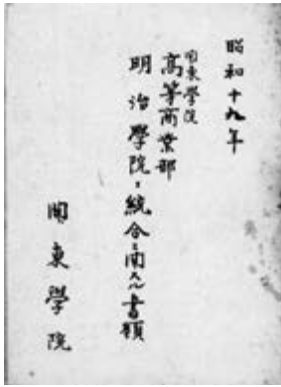 昭和十九年
関東學院
高等商業部
明治學院ト統合ニ関スル書類
関東學院